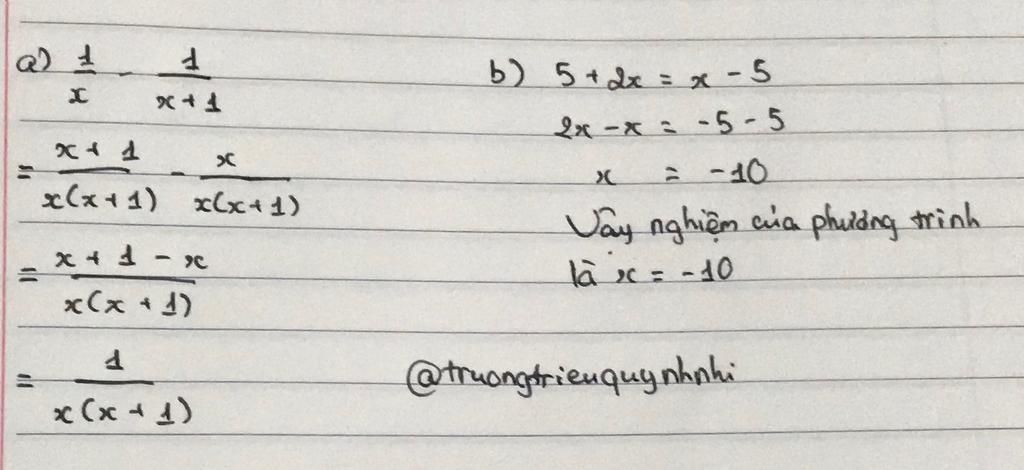 a) 1/x - 1/(x+1)
= (x+1)/(x(x+1)) - x/(x(x+1))
= (x+1-x)/(x(x+1))
= 1/(x(x+1))
b) 5+2x = x-5
2x-x = -5-5
x = -10
Vậy nghiệm của phương trình
là x = -10
@truongtrieuquynhnhi